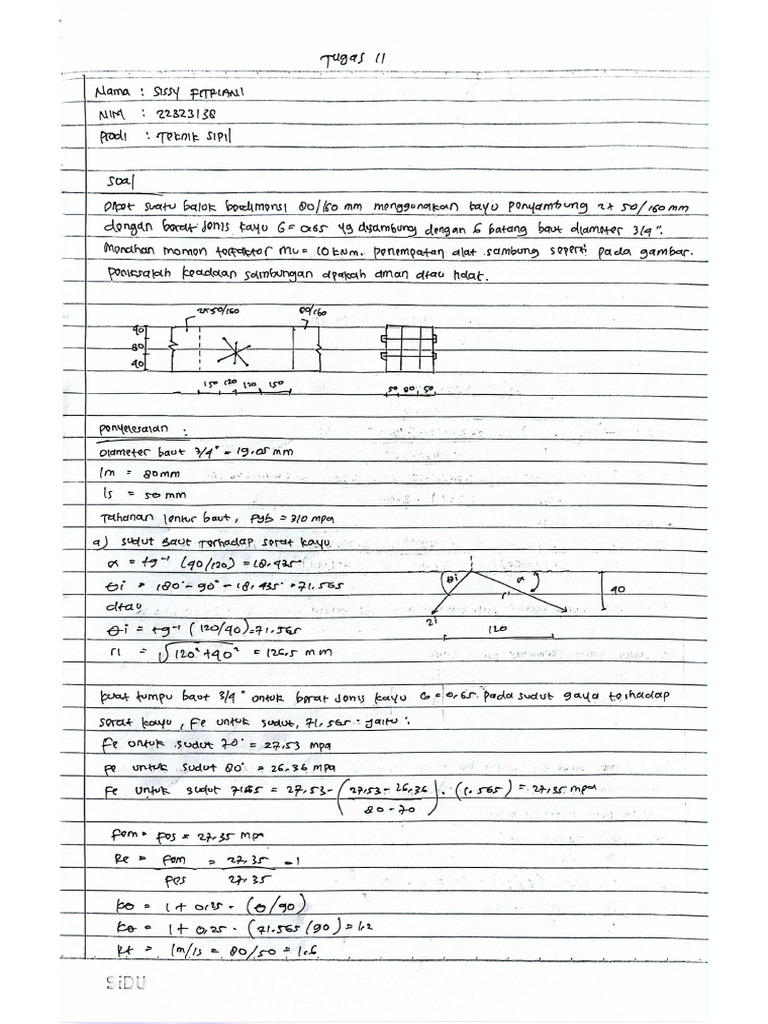 Tugas 11
Nama : SISSY FITRIANI
NIM : 22323138
Prodi : Teknik SIPIL
Soal
Dket suatu balok berdimensi 80/160 mm menggunakan kayu penyambung 2x 50/160 mm
dengan berat Jenis kayu G = 0.65 yg disambung dengan 6 batang baut diameter 3/4".
Menahan momen terfaktor Mu = 10 kNm. penempatan alat sambung seperti pada gambar.
Periksalah keadaan sambungan apakah aman atau tidak.
2x50/160
80/160
40
80
40
150 120 120 150
50 80 50
penyelesaian :
Diameter baut 3/4" = 19.05 mm
lm = 80mm
ls = 50 mm
Tahanan lentur baut, Fyb = 310 mpa
a) sudut Baut terhadap serat kayu
α = tg⁻¹ (40/120) = 18.435°
θi = 180° - 90° - 18.435° = 71.565
atau
θi = tg⁻¹ (120/40) = 71.565
r1 = √120² + 40² = 126.5 mm
θi
α
ri
zi
40
120
kuat tumpu baut 3/4" untuk berat Jenis kayu G = 0.65 pada sudut gaya terhadap
serat kayu, Fe untuk sudut, 71.565° yaitu :
Fe untuk sudut 70° = 27.53 mpa
Fe untuk sudut 80° = 26.36 mpa
Fe untuk sudut 71.565 = 27.53 - (27.53 - 26.36 / 80 - 70) . (1.565) = 27.35 mpa
Fem = Fes = 27.35 mpa
Re = Fem / Fes = 27.35 / 27.35 = 1
kθ = 1 + 0.25 . (θ/90)
kθ = 1 + 0.25 . (71.565/90) = 1.2
Rt = lm/ls = 80/50 = 1.6
SiDU